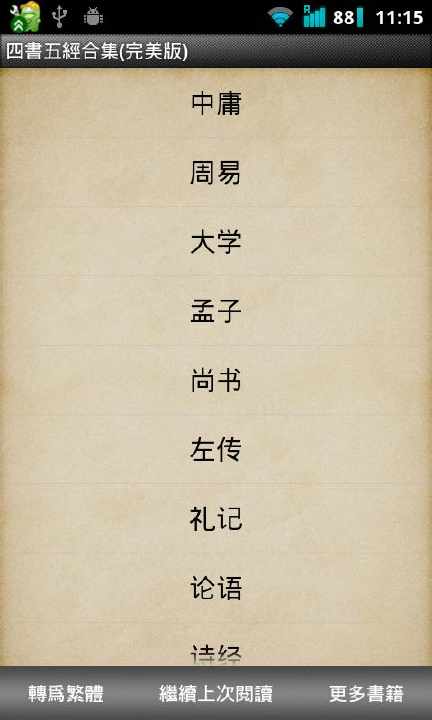 88 11:15
四書五經合集(完美版)
中庸
周易
大学
孟子
尚书
左传
礼记
论语
诗经
轉爲繁體 繼續上次閱讀 更多書籍